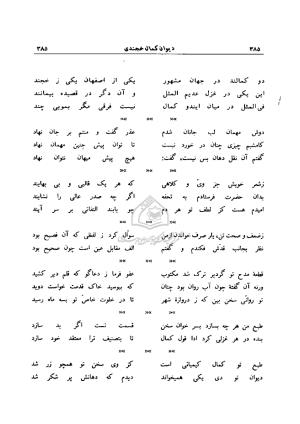 ۳۸۵ دیوان کمال خجندی ۳۸۵
دو کمالند در جهان مشهور یکی از اصفهان یکی ز خجند
این یکی در غزل عدیم المثل و آن دگر در قصیده بیمانند
فی‌المثل در میان ایندو کمال نیست فرقی مگر بمویی چند
**
دوش مهمان لب جانان شدم عذر گفت و منتم بر جان نهاد
کامشبم چیزی چنان در خورد نیست تا توان پیش چنین مهمان نهاد
گفتم آن نقل دهان بس نیست، گفت: هیچ پیش میهمان نتوان نهاد
**
زشعر خویش جز وی و کلاهی که هر یک قالبی و بی بهایند
بدان حضرت فرستادم به تحفه اگر چه صدر عالی را نشایند
امیدم هست کز لطف تو هر دم جو یابند التفاتی بر سر آیند
**
زضعف و صحت نی، یار صرف‌خوان ازمن سوآل کرد ز لفظی که آن فصیح بود
نظر بجانب قدش فکندم و گفتم الف مقابل عین است چون صحیح بود
**
قطعهٔ مدح تو گردیر ترک شد مکتوب عفو فرما ز دعاگو که قلم کاهل بود
ورنه آن گفتهٔ چون آب روان بود چنان که ببوسید خاک قدمت خواست دوید
تو روانی سخن بین که ز دروازهٔ شهر تا در خلوت خاص تو بسه ماه رسید
**
طبع من هر چه بسازد بسر خوان سخن قسمت تست اگر بد سازد
بنده در هر غزلی کرد ادا قول کمال تا بتصنیف ترا معتقد خود سازد
**
طبع تو کمال کیمیائی است کز وی سخن تو همچو زر شد
دیوان تو دی یکی همیخواند دیدم که دهانش پر شکر شد